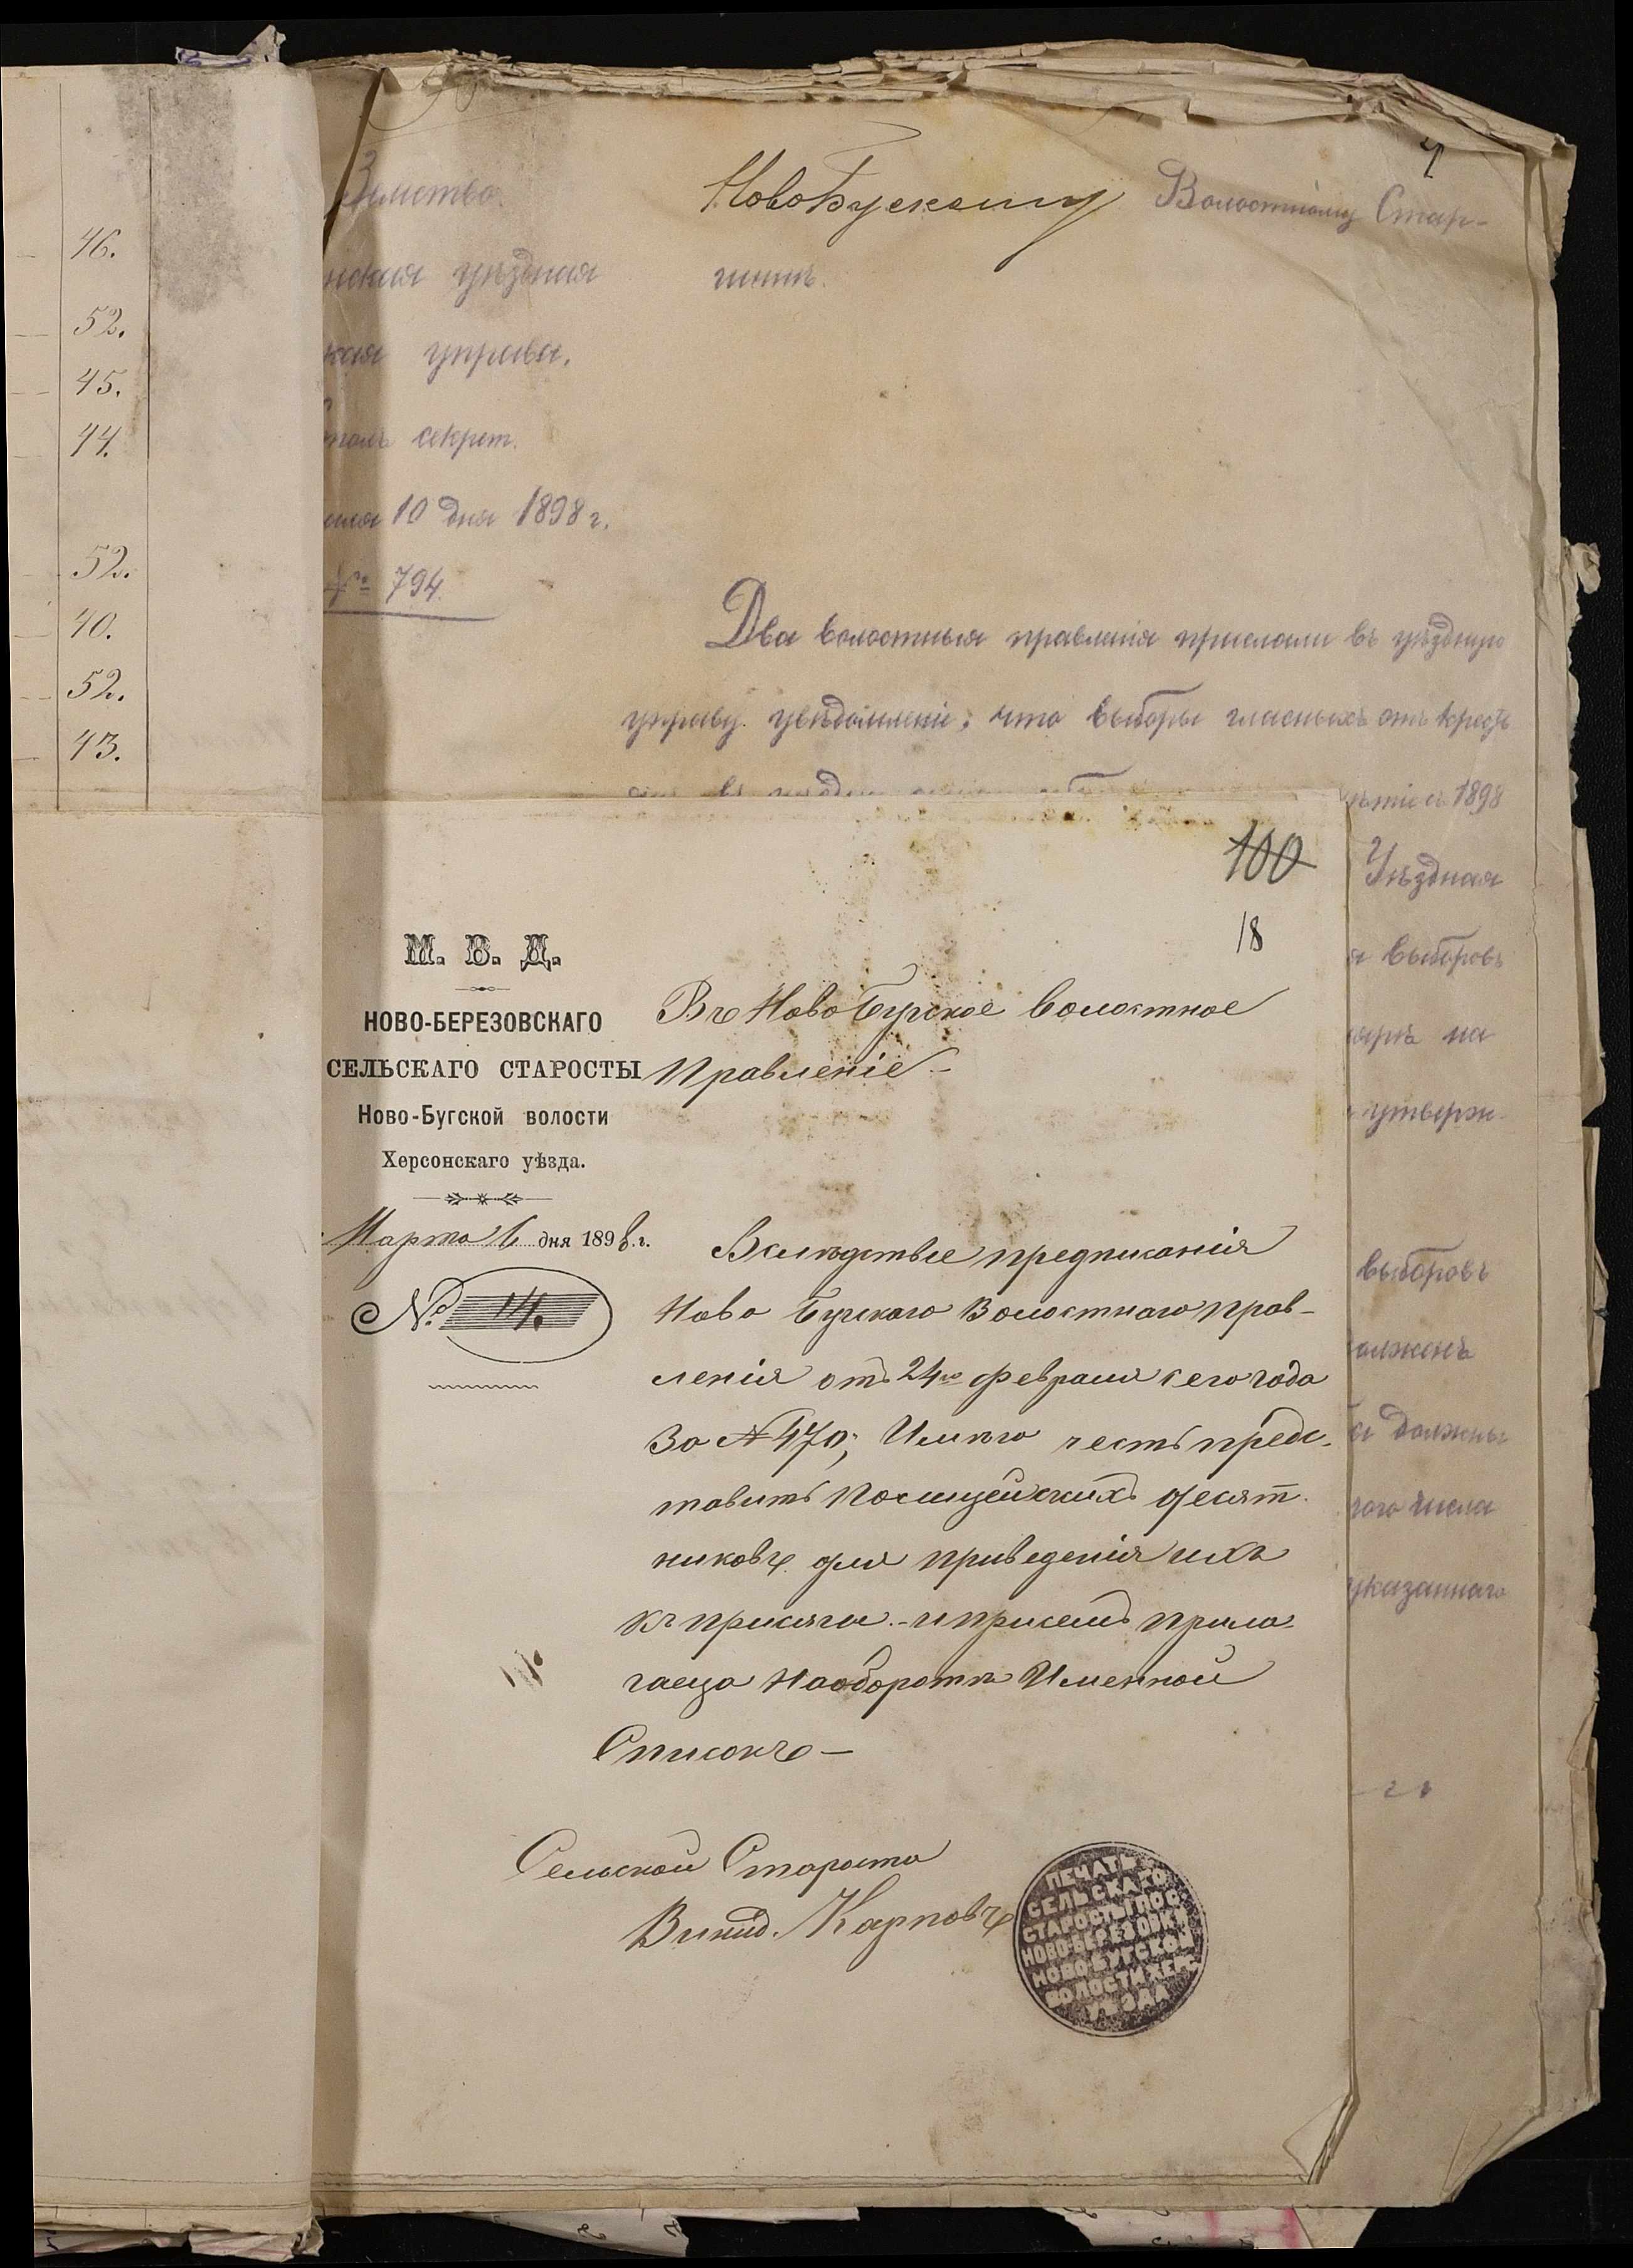 46.
52.
45.
44.
52.
40.
52.
43.
Земство.
НовоБугскому Волостному Стар-
шинѣ.
уѣздная
управа.
секрет.
10 дня 1898 г.
794.
Два волостныя правленія прислали въ уѣздную
управу увѣдомленіе, что выборы гласныхъ отъ кресть
1898
Уѣздная
выборовъ
на
утверж-
выборовъ
должны
числа
указаннаго
100
18
М. В. Д.
НОВО-БЕРЕЗОВСКАГО
СЕЛЬСКАГО СТАРОСТЫ
Ново-Бугской волости
Херсонскаго уѣзда.
Марта 6 дня 1898 г.
№ 14.
Въ Ново Бугское волостное
Правленіе –
Вслѣдствіе предписанія
Ново Бугскаго Волостнаго прав-
ленія отъ 24го февраля сего года
За № 470; Имѣю честь предс-
тавить Полицейскихъ десят-
никовъ для приведенія ихъ
къ присяги – и присемъ прила-
гаеца Наоборотѣ Именной
Списокъ –
Сельской Староста
Карповъ
ПЕЧАТЬ
СЕЛЬСКАГО
СТАРОСТЫ ПОС.
НОВО-БЕРЕЗОВКИ
НОВО-БУГСКОЙ
ВОЛОСТИ ХЕР.
УѢЗДА